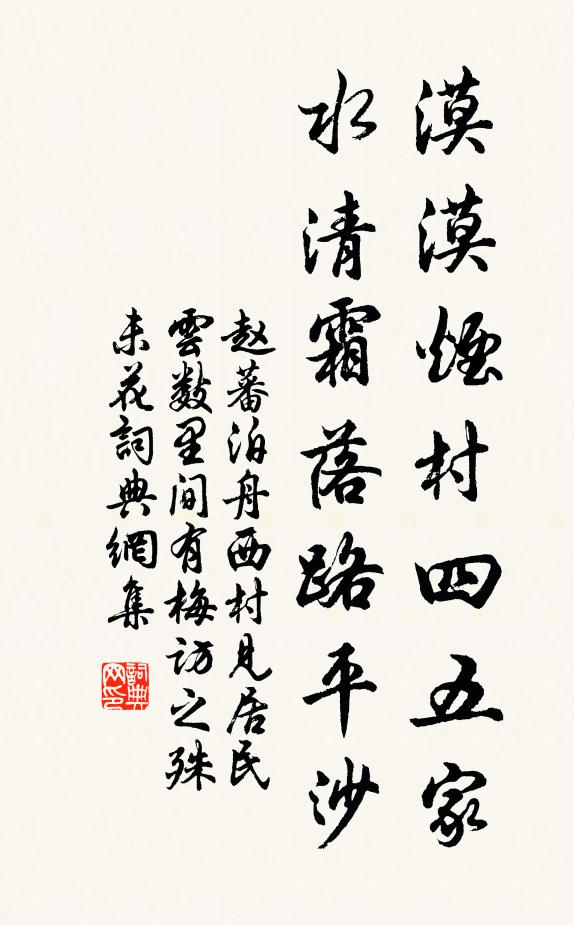 漠漠煙村四五家
水清霜落路平沙
赵蕃泊舟西村見居民
雲数里间有梅访之殊
未花詞典網集
詞典网印